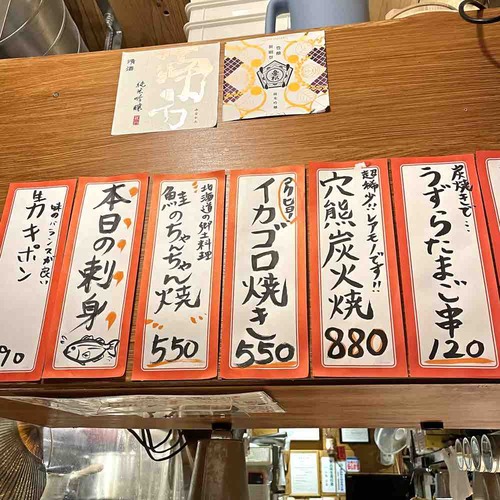 清酒
純米吟醸
炭焼きで…
うずらたまご串
120
超稀少!!レアモノです!!
穴熊炭火焼
880
アケ旨
イカゴロ焼き
550
北海道の郷土料理
鮭のちゃんちゃん焼
550
本日の刺身
味のバランスが良い
男キポン
90